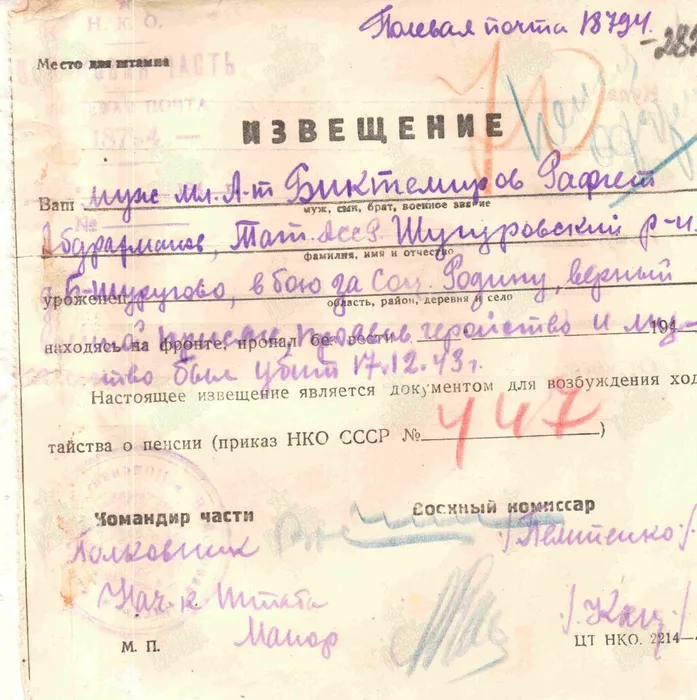 Н. К. О.
Полевая почта 18794.
-282
Место для штампа
ЧАСТЬ
ПОЧТА
ИЗВЕЩЕНИЕ
Ваш муж мл. л-т Биктемиров Рафгет
муж, сын, брат, военное звание
№
Абдрафманов, Тат. АССР. Шугуровский р-н.
фамилия, имя и отчество
уроженец д. Б-Шугурово, в бою за Соц. Родину, верный
область, район, деревня и село
находясь на фронте, пропал без вести присяге, проявив геройство и му- 194
жество был убит 17.12.43г.
Настоящее извещение является документом для возбуждения ход
тайства о пенсии (приказ НКО СССР № 447)
Командир части Военный комиссар
Полковник /Пелипенко/
Нач-к Штаба
Майор /Кац/
М. П. ЦТ НКО. 2214—